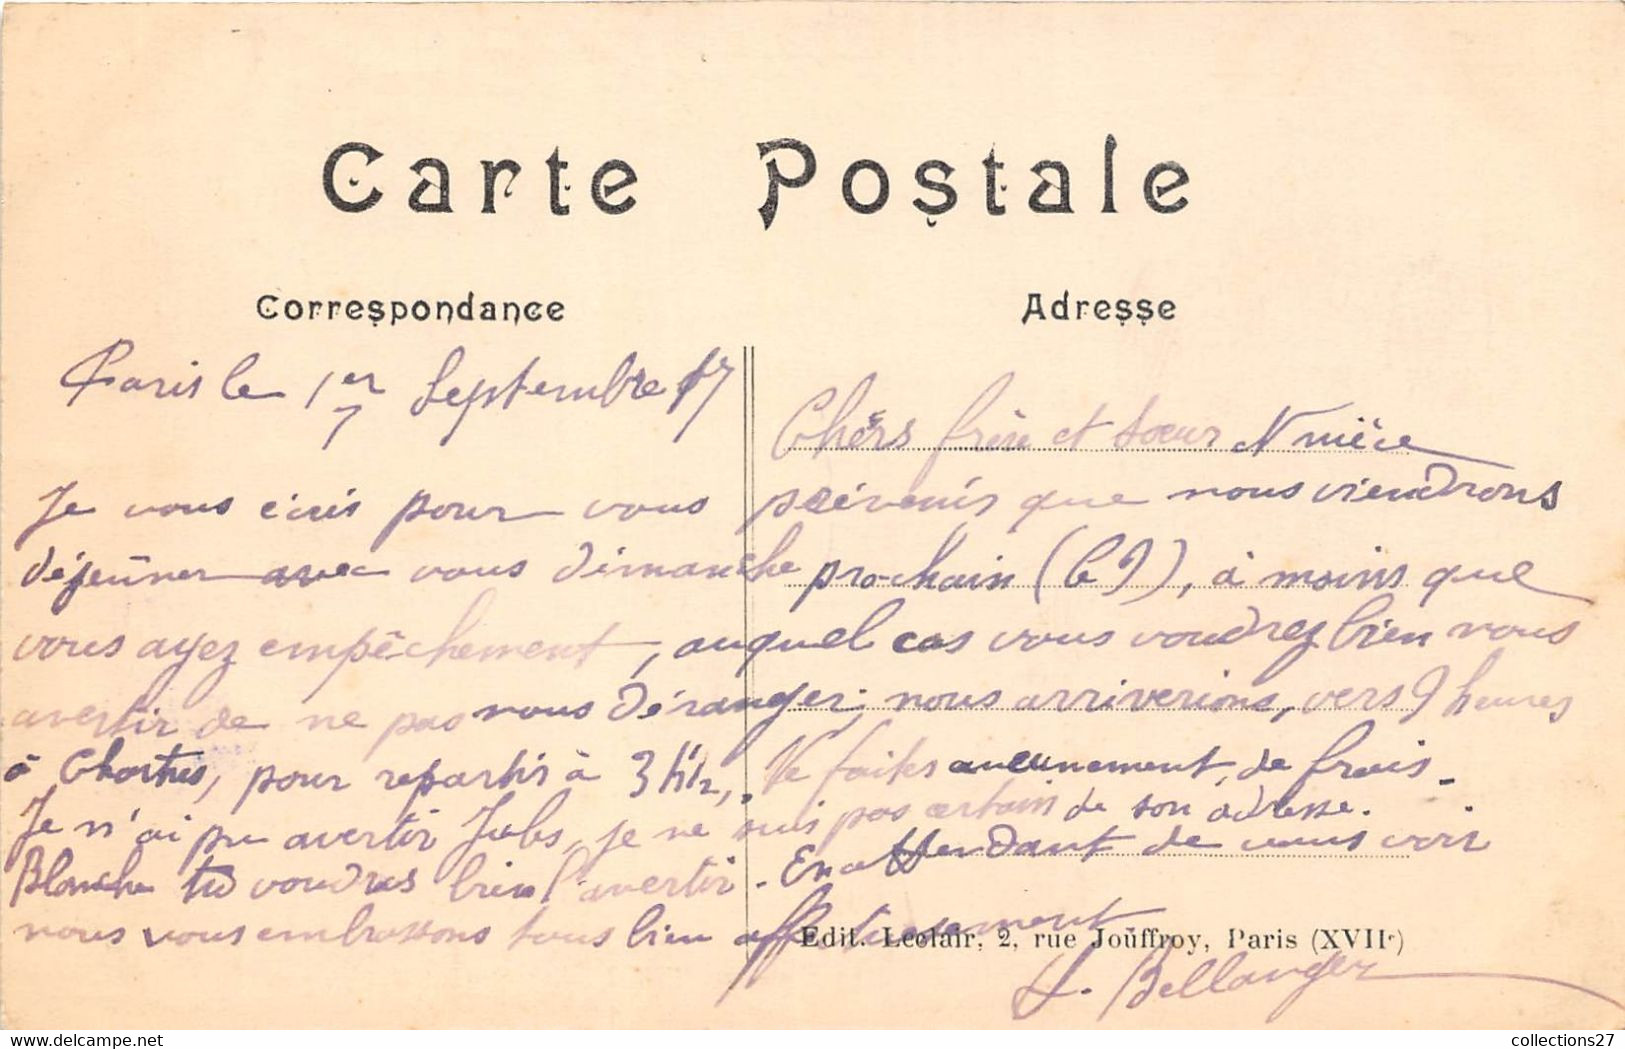 Carte Postale
Correspondance
Adresse
Paris le 1er 7 Septembre 17
Chers frère et sœur et nièce
Je vous écris pour vous prévenir que nous viendrons
déjeûner avec vous dimanche prochain (le 9), à moins que
vous ayez empêchement, auquel cas vous voudrez bien nous
avertir de ne pas nous déranger; nous arriverions, vers 9 heures
à Chartres, pour repartir à 3h 1/2, Ne faites aucunement de frais.
Je n'ai pu avertir Jules, je ne suis pas certain de son adresse.
Blanche tu voudras bien l'avertir. En attendant de vous voir
nous vous embrassons tous bien affectueusement
Edit. Leclair, 2, rue Jouffroy, Paris (XVIIe)
L. Bellanger
collections27